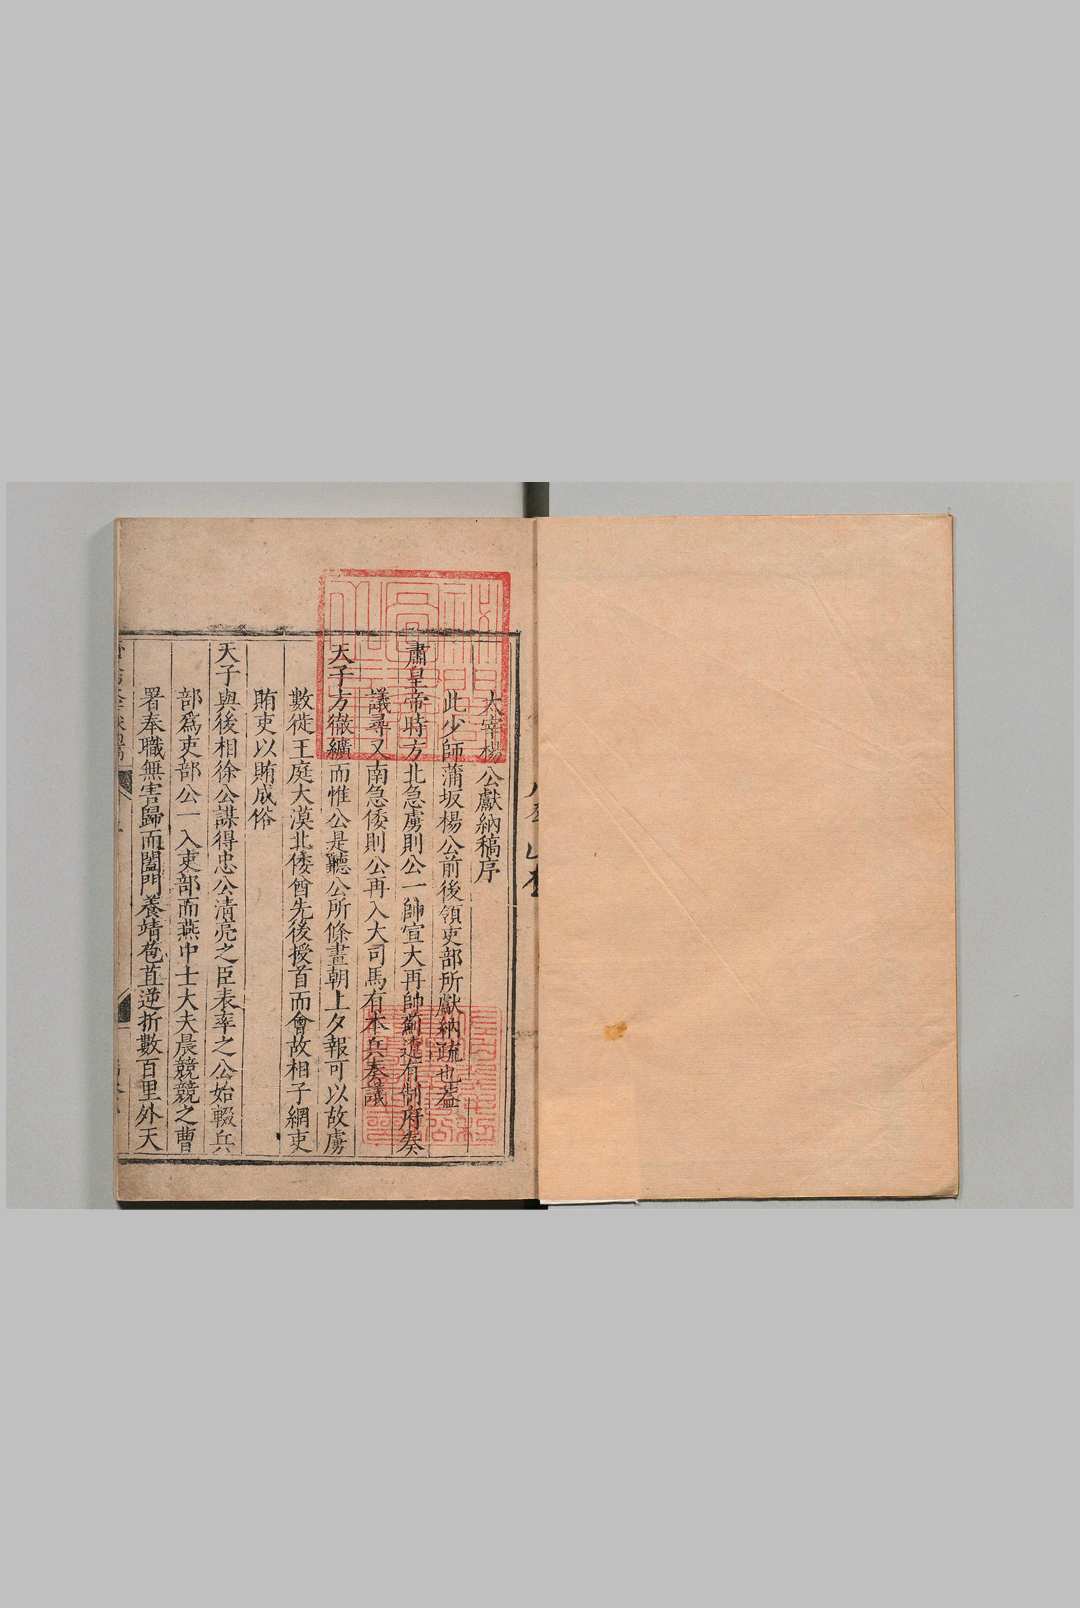 太宰楊公獻納稿序
此少師蒲坂楊公前後領吏部所獻納疏也蓋
肅皇帝時方北急虜則公一帥宣大再帥薊遼有制府奏
議尋又南急倭則公再入大司馬有本兵奏議
天子方徹纊而惟公是聽公所條畫朝上夕報可以故虜
數徙王庭大漠北倭酋先後授首而會故相子網吏
賄吏以賄成俗
天子與後相徐公謀得忠公清亮之臣表率之公始輟兵
部為吏部公一入吏部而燕中士大夫晨競競之曹
署奉職無害歸而闔門養靖苞苴逆折數百里外天